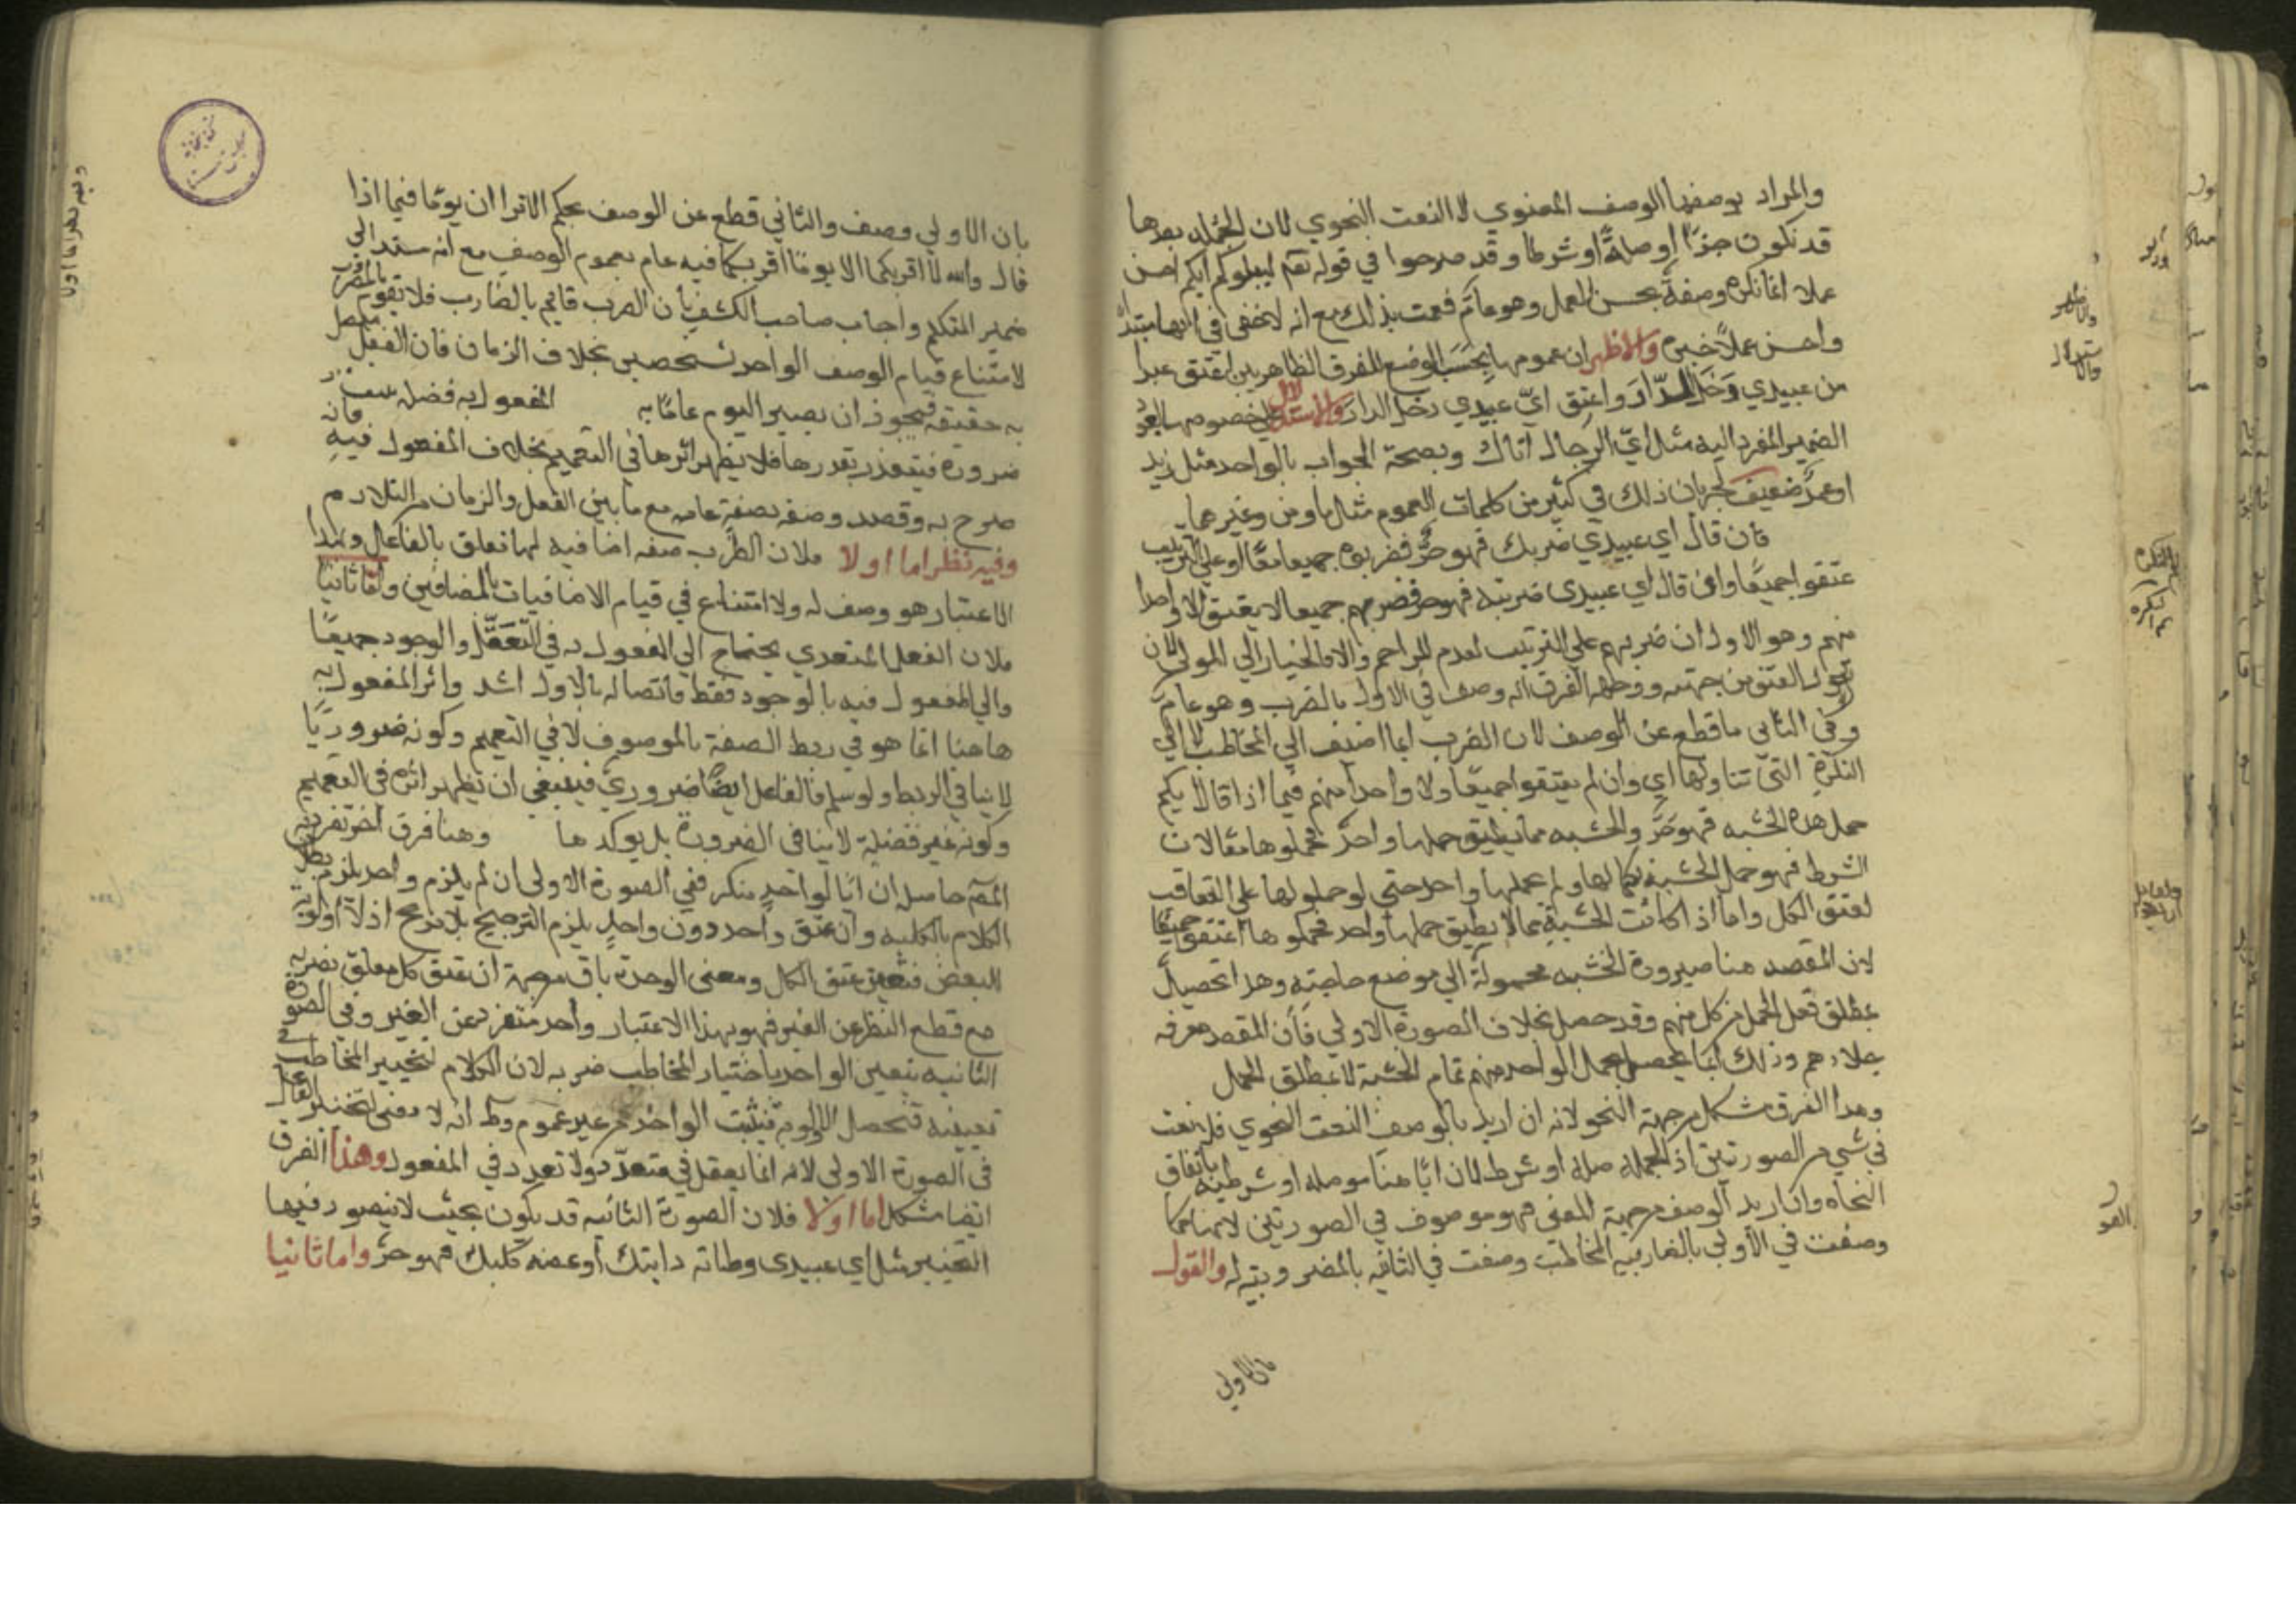 والمراد بوصفها الوصف المعنوي لا النعت النحوي لان الجمله بعدها
قد تكون خبرًا او صلةً او شرطا وقد صرحوا في قوله تعم ليبلوكم ايكم احسن
عملا انها نكره وصفة بحسن العمل وهو عام فعمت بذلك مع انه لا يخفى في انها مبتدأ
واحسن عملاً خبره والاظهر ان عمومها بحسَب الوضع للفرق الظاهر بين اعتق عبدا
من عبيدي دَخَل الدّار واعتق ايّ عبيدي دخل الدار والاستدلال على خصوصها بعود
الضمير المفرد اليه مثل ايّ الرجال اتاك وبصحة الجواب بالواحد مثل زيد
او عمرٌو ضعيف لجريان ذلك في كثير من كلمات العموم مثل ما ومن وغيرهما
فان قال اي عبيدي ضربك فهو حرٌّ فضربوه جميعا معًا او علي الترتيب
عتقوا جميعًا وان قال اي عبيدى ضربته فهو حر فضربهم جميعا لا يعتق الا واحدا
منهم وهو الاول ان ضربهم علي الترتيب لعدم المزاحم والا فالخيار الي المولى لان
نزول العتق من جهته ووجه الفرق انه وصف في الاول بالضرب وهو عام
وفى الثانى ما قطع عن الوصف لان الضرب انما اضيف الي المخاطب لا الي
النكرة التي تناولها اي وان لم يعتقوا جميعًا ولا واحد منهم فيما اذا قال ايكم
حمل هذه الخشبه فهو حرٌّ والخشبه مما يطيق حملها واحدٌ فحملوها معًا لان
الشرط فهو حمل الخشبة بكمالها ولم يحملها واحد حتى لو حملوها على التعاقب
لعتق الكل واما اذا كانت الخشبة مما لا يطيق حملها واحد فحملوها اعتقوا جميعًا
لان المقصد هنا صيرورة الخشبه محمولة الي موضع حاجته وهذا تحصيل
بمطلق فعل الحمل من كل منهم وقد حصل بخلاف الصورة الاولي فان المقصد معرفه
جلادهم وذلك انما يحصل بحمل الواحد منهم تمام الخشبة لا بمطلق الحمل
وهذا الفرق مشكل من جهة النحو لانه ان اريد بالوصف النعت النحوي فلا نعت
في شي من الصورتين اذ الجمله صله او شرط لان ايّا هنا موصله او شرطيه باتفاق
النحاه وان اريد الوصف من جهة المعنى فهو موصوف في الصورتين لانها كما
وصفت في الأولى بالضاربيه للمخاطب وصفت في الثانيه بالمضروبيه له والقول
بان الاولي
بان الاولي وصف والثاني قطع عن الوصف بحكم الا ترا ان يومًا فيما اذا
قال والله لا اقربكما الا يومًا اقربكما فيه عام بعموم الوصف مع انه مسند الي
ضمير المتكلم واجاب صاحب الكشف بأن الضرب قائم بالضارب فلا يقوم بالمضروب
لامتناع قيام الوصف الواحد بشخصين بخلاف الزمان فان الفعل متصل
به حقيقه فيجوز ان يصير اليوم عامًا به المفعول به فضله
ضرورة فيتقدر بقدرها فلا يظهر اثرها في التعميم بخلاف المفعول فيه فانه
صرح به وقصد وصفه بصفة عامه مع ما بين الفعل والزمان من التلازم
وفيه نظر اما اولا فلان الضرب صفه اضافيه لها تعلق بالفاعل وبهذا
الاعتبار هو وصف له ولا امتناع في قيام الاضافيات بالمضافين واما ثانيا
فلان الفعل المتعدي يحتاج الي المفعول به في التعَقُّل والوجود جميعًا
والي المفعول فيه بالوجود فقط فاتصاله بالاول اشد واثر المفعول به
هاهنا انما هو في ربط الصفة بالموصوف لا في التعميم وكونه ضروريًا
لا ينافي الربط ولو سلم فالفاعل ايضًا ضروريّ فينبغي ان يظهر اثره في التعميم
وكونه غير فضلة لا ينافى الضرورة بل يوكدها وهنا فرق اخر تفرد به
المصَ حاصله ان ايّا لواحدٍ منكر ففي الصورة الاولى ان لم يلزم واحد يلزم بطلان
الكلام بالكليه وان عتق واحد دون واحدٍ يلزم الترجيح بلا مرجح اذ لا اولوية
للبعض فتعين عتق الكل ومعنى الوحدة باق من جهة ان عتق كل معلق بضربه
مع قطع النظر عن الغير فهو بهذا الاعتبار واحد متفرد عن الغير وفي الصورة
الثانيه يتعين الواحد باختيار المخاطب ضربه لان الكلام لتخيير المخاطب في
تعيينه فتحصل الاولوية فيثبت الواحد من غير عموم وظ انه لا معنى لتخيير الفاعل
في الصورة الاولى لانه انما يعقل في متعدّد ولا تعدد في المفعول وهذا الفرق
ايضا مشكل اما اولا فلان الصورة الثانيه قد يكون بحيث لا يتصور فيها
التخيير مثل اي عبيدى وطاته دابتك او عضه كلبك فهو حرٌّ واما ثانيا